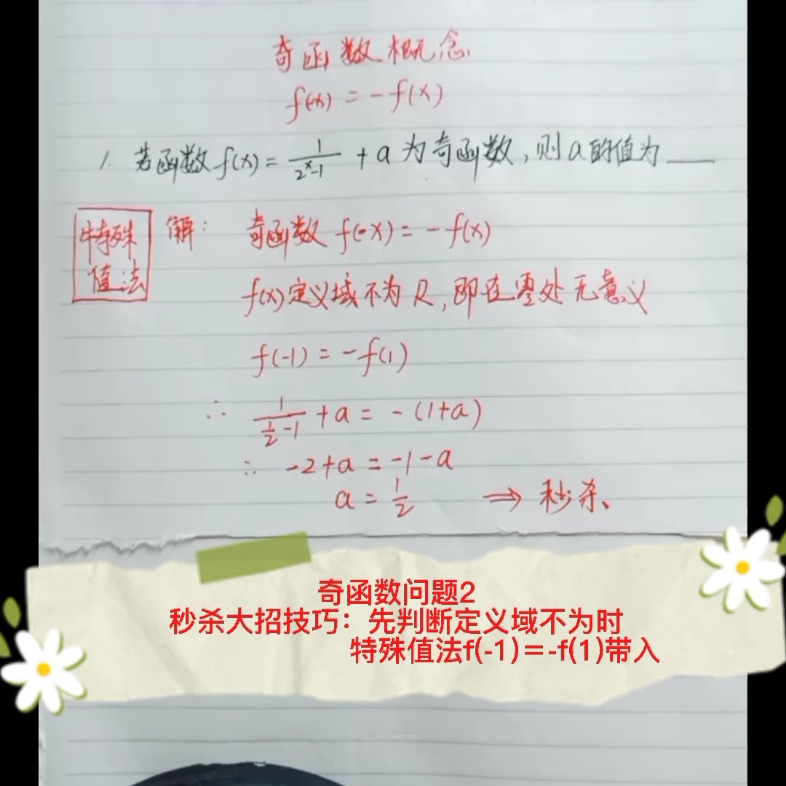 奇函数概念
f(-x) = -f(x)
1. 若函数 f(x) = 1/(2^x-1) + a 为奇函数,则a的值为___
特殊值法
解: 奇函数 f(-x) = -f(x)
f(x)定义域不为R,即在零处无意义
f(-1) = -f(1)
∴ 1/(1/2-1) + a = -(1+a)
∴ -2+a = -1-a
a = 1/2 ⇒ 秒杀、
奇函数问题2
秒杀大招技巧:先判断定义域不为时
特殊值法f(-1)=-f(1)带入